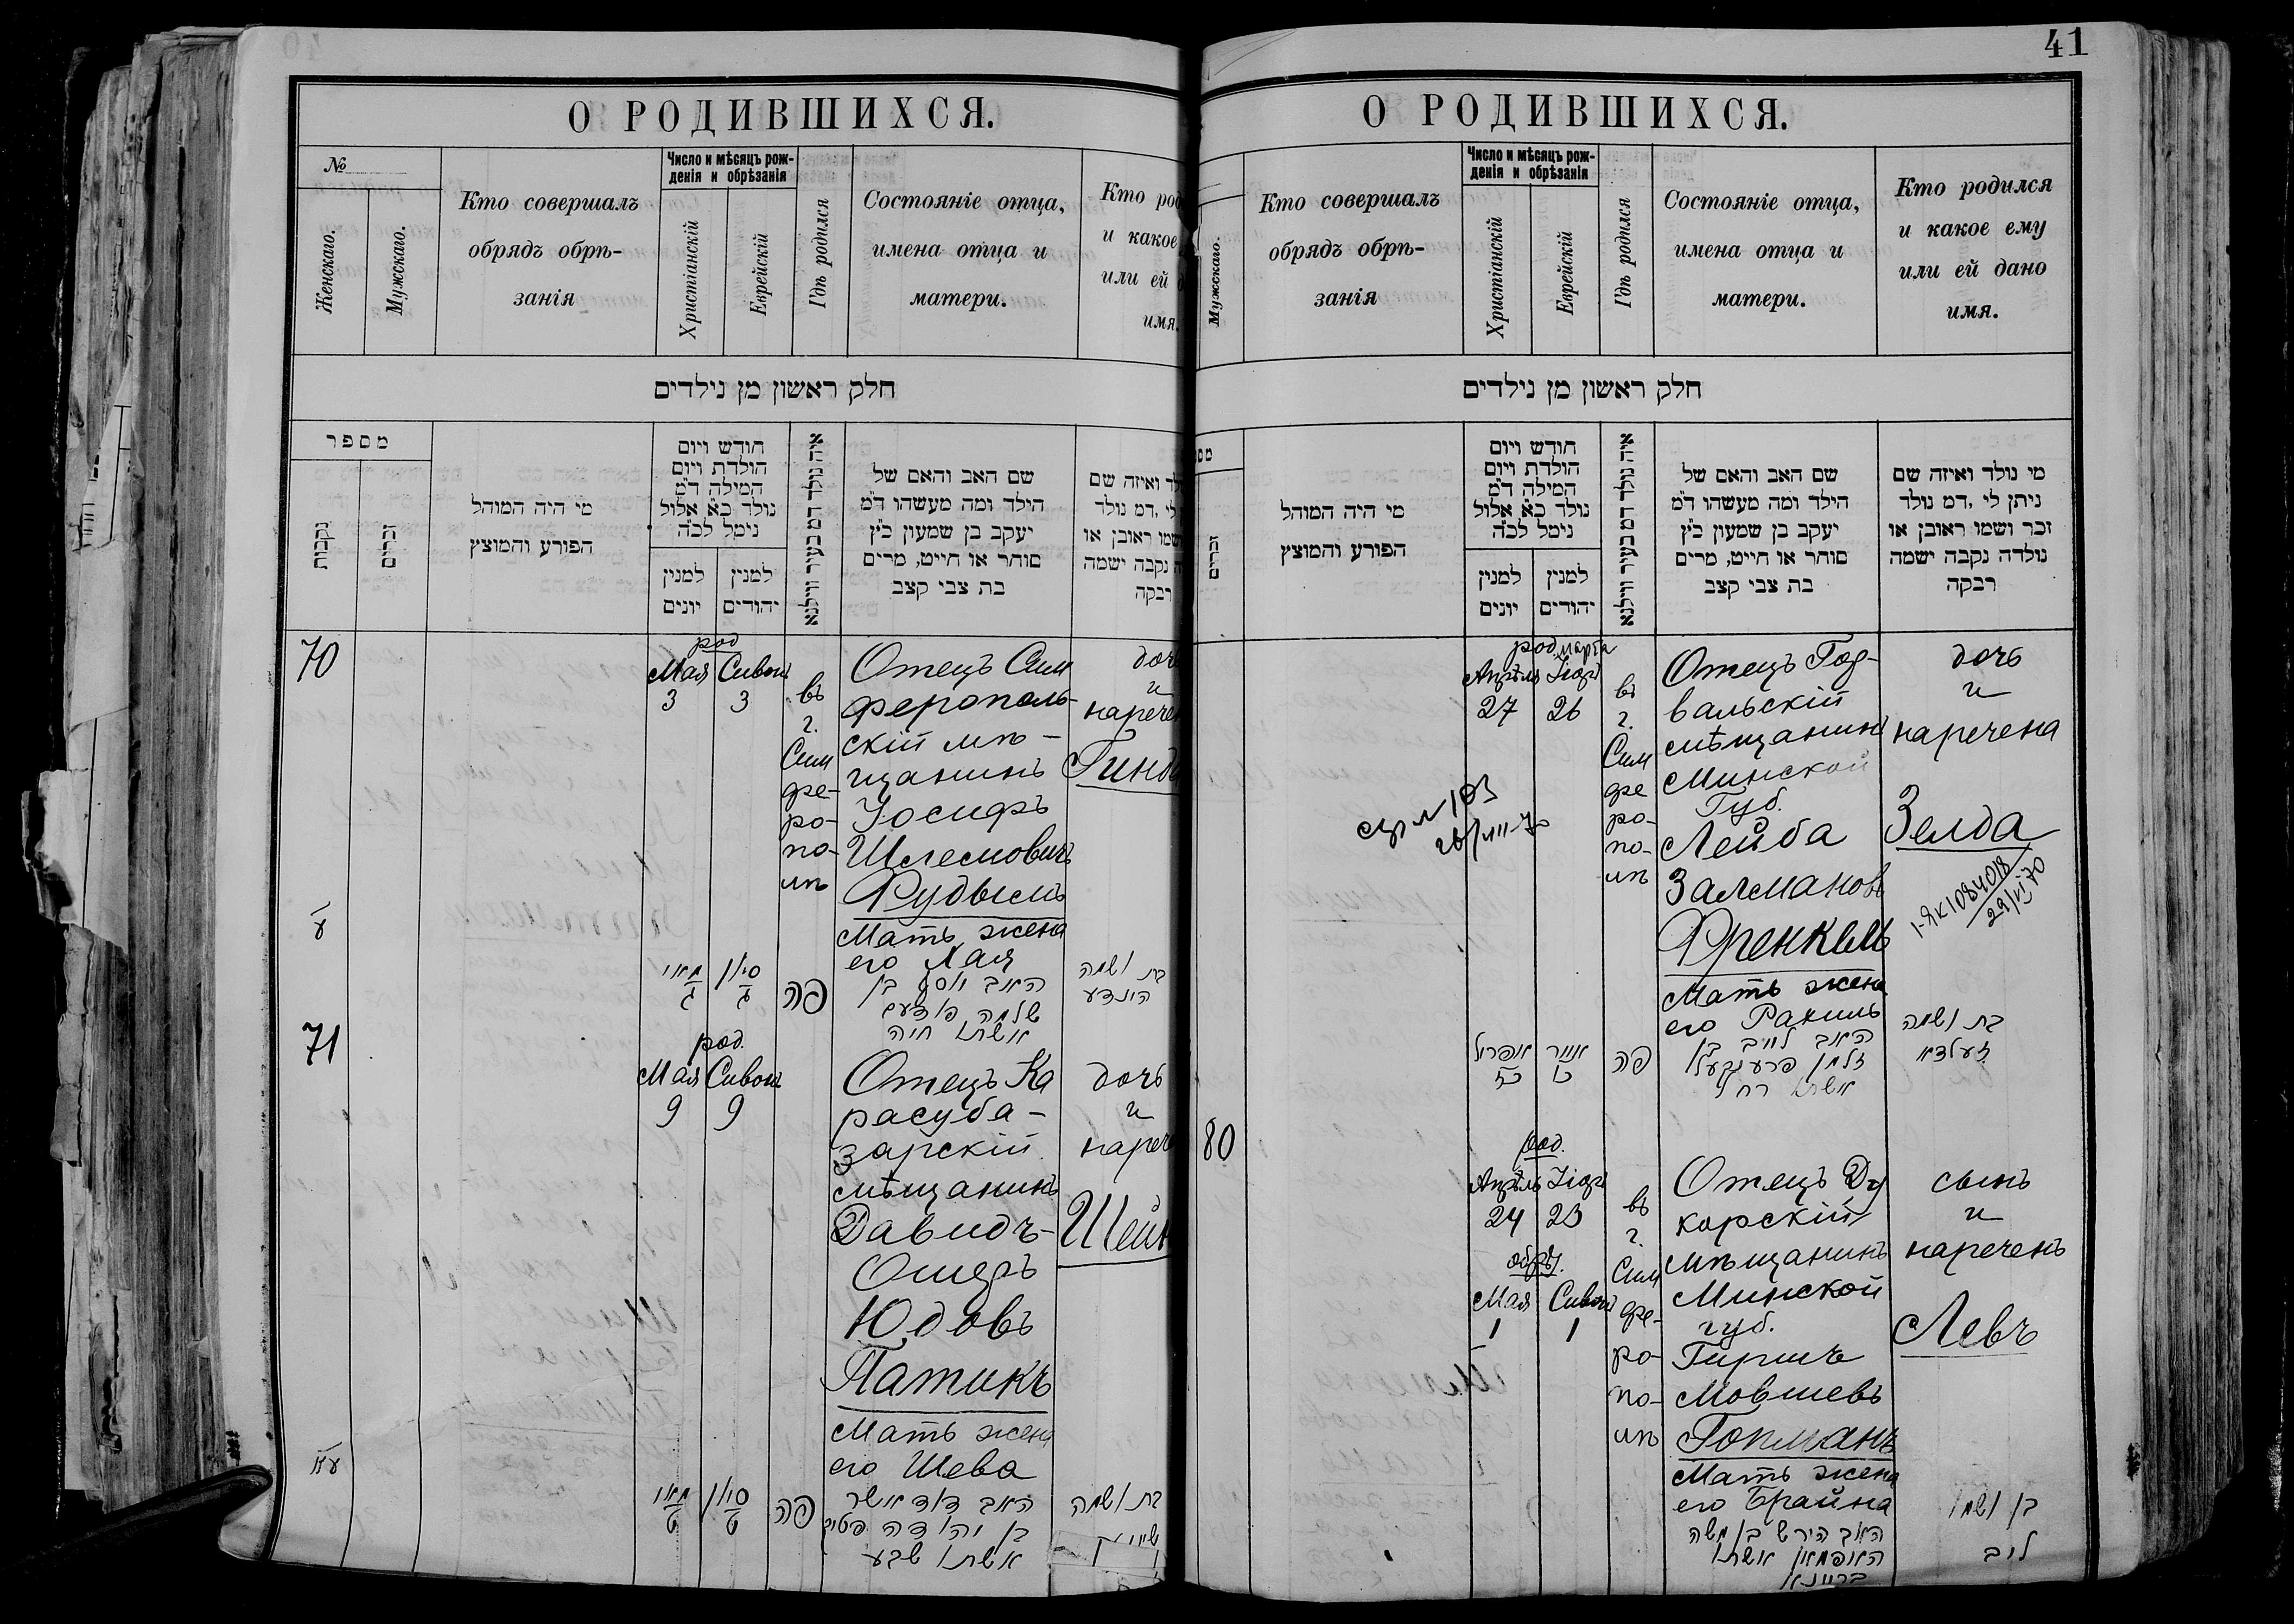 41
О РОДИВШИХСЯ.
№
Женскаго.
Мужскаго.
Кто совершалъ
обрядъ обрѣ-
занія
Число и мѣсяцъ рож-
денія и обрѣзанія
Христіанскій
Еврейскій
Гдѣ родился
Состояніе отца,
имена отца и
матери.
Кто род
и какое
или ей
имя.
חלק ראשון מן נילדים
מספר
נקבות
זכרים
מי היה המוהל
הפורע והמוצץ
חודש ויום
הולדת ויום
המילה ד"מ
נולד כ"א אלול
נימל לכ"ה
למנין
יונים
למנין
יהודים
איה נולד דמ בעיר ווילנא
שם האב והאם של
הילד ומה מעשהו ד"מ
יעקב בן שמעון כ"ץ
סוחר או חייט, מרים
בת צבי קצב
לד ואיזה שם
לי ,דמ נולד
שמו ראובן או
ה נקבה ישמה
רבקה
70
род
Мая Сивон
3 3
въ
г.
Сим
фе-
ро-
по-
лѣ
Отецъ Сим
ферополь-
скій мѣ-
щанинъ
Іосифъ
Шлемовичъ
Рудымъ
Мать жена
его Хая
дочь
и
наречен
Гинда
ע
מאי
ג
סיון
ג
פה
האב יוסף בן
שלמה
אשתו חיה
בת ושמה
הינדע
71
род.
Мая Сивон
9 9
Отецъ Ка
расуба-
зарскій
мѣщанинъ
Давидъ-
Ошеръ
Юдовъ
Патикъ
Мать жена
его Шева
дочь
и
нареч
Шейн
עא
מאי
ט
סיון
ט
פה
האב דוד אשר
בן יהודה פטיק
אשתו שבע
בת ושמה
О РОДИВШИХСЯ.
Мужскаго.
Кто совершалъ
обрядъ обрѣ-
занія
Число и мѣсяцъ рож-
денія и обрѣзанія
Христіанскій
Еврейскій
Гдѣ родился
Состояніе отца,
имена отца и
матери.
Кто родился
и какое ему
или ей дано
имя.
חלק ראשון מן נילדים
מס
זכרים
מי היה המוהל
הפורע והמוצץ
חודש ויום
הולדת ויום
המילה ד"מ
נולד כ"א אלול
נימל לכ"ה
למנין
יונים
למנין
יהודים
איה נולד דמ בעיר ווילנא
שם האב והאם של
הילד ומה מעשהו ד"מ
יעקב בן שמעון כ"ץ
סוחר או חייט, מרים
בת צבי קצב
מי נולד ואיזה שם
ניתן לי ,דמ נולד
זכר ושמו ראובן או
נולדה נקבה ישמה
רבקה
род. марта
Апрѣля Іяръ
27 26
въ
г.
Сим
фе
ро-
по-
лѣ
Отецъ Год-
вальскій
мѣщанинъ
Минской
Губ.
Лейба
Залманов
Френкель
Мать жена
его Рахиль
дочь
и
наречена
Зелда
I-ЯК 1084018
29/VI 70
אפריל
כז
אייר
פה
האב לייב בן
זלמן פרענקעל
אשתו רחל
בת ושמה
זעלדא
80
род.
Апрѣль Іяръ
24 23
обрѣз.
Мая Сивон
1 1
въ
г.
Сим
фе-
ро-
по-
лѣ
Отецъ Ду
корскій
мѣщанинъ
Минской
губ.
Гиршъ
Мовшевъ
Гопманъ
Мать жена
его Брайна
האב הירש בן משה
האפמאן אשתו
בריינא
сынъ
и
нареченъ
Левъ
בן ושמו
ליב